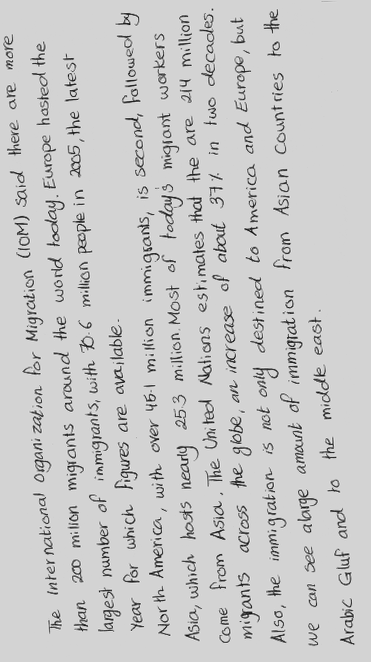 The International organization for Migration (IOM) said there are more
than 200 million migrants around the world today. Europe hosted the
largest number of immigrants, with 70.6 million people in 2005, the latest
Year for which figures are available.
North America, with over 45.1 million immigrants, is second, followed by
Asia, which hosts nearly 25.3 million. Most of today's migrant workers
come from Asia. The United Nations estimates that the are 214 million
migrants across the globe, an increase of about 37% in two decades.
Also, the immigration is not only destined to America and Europe, but
we can see alarge amount of immigration from Asian Countries to the
Arabic Gluf and to the middle east.